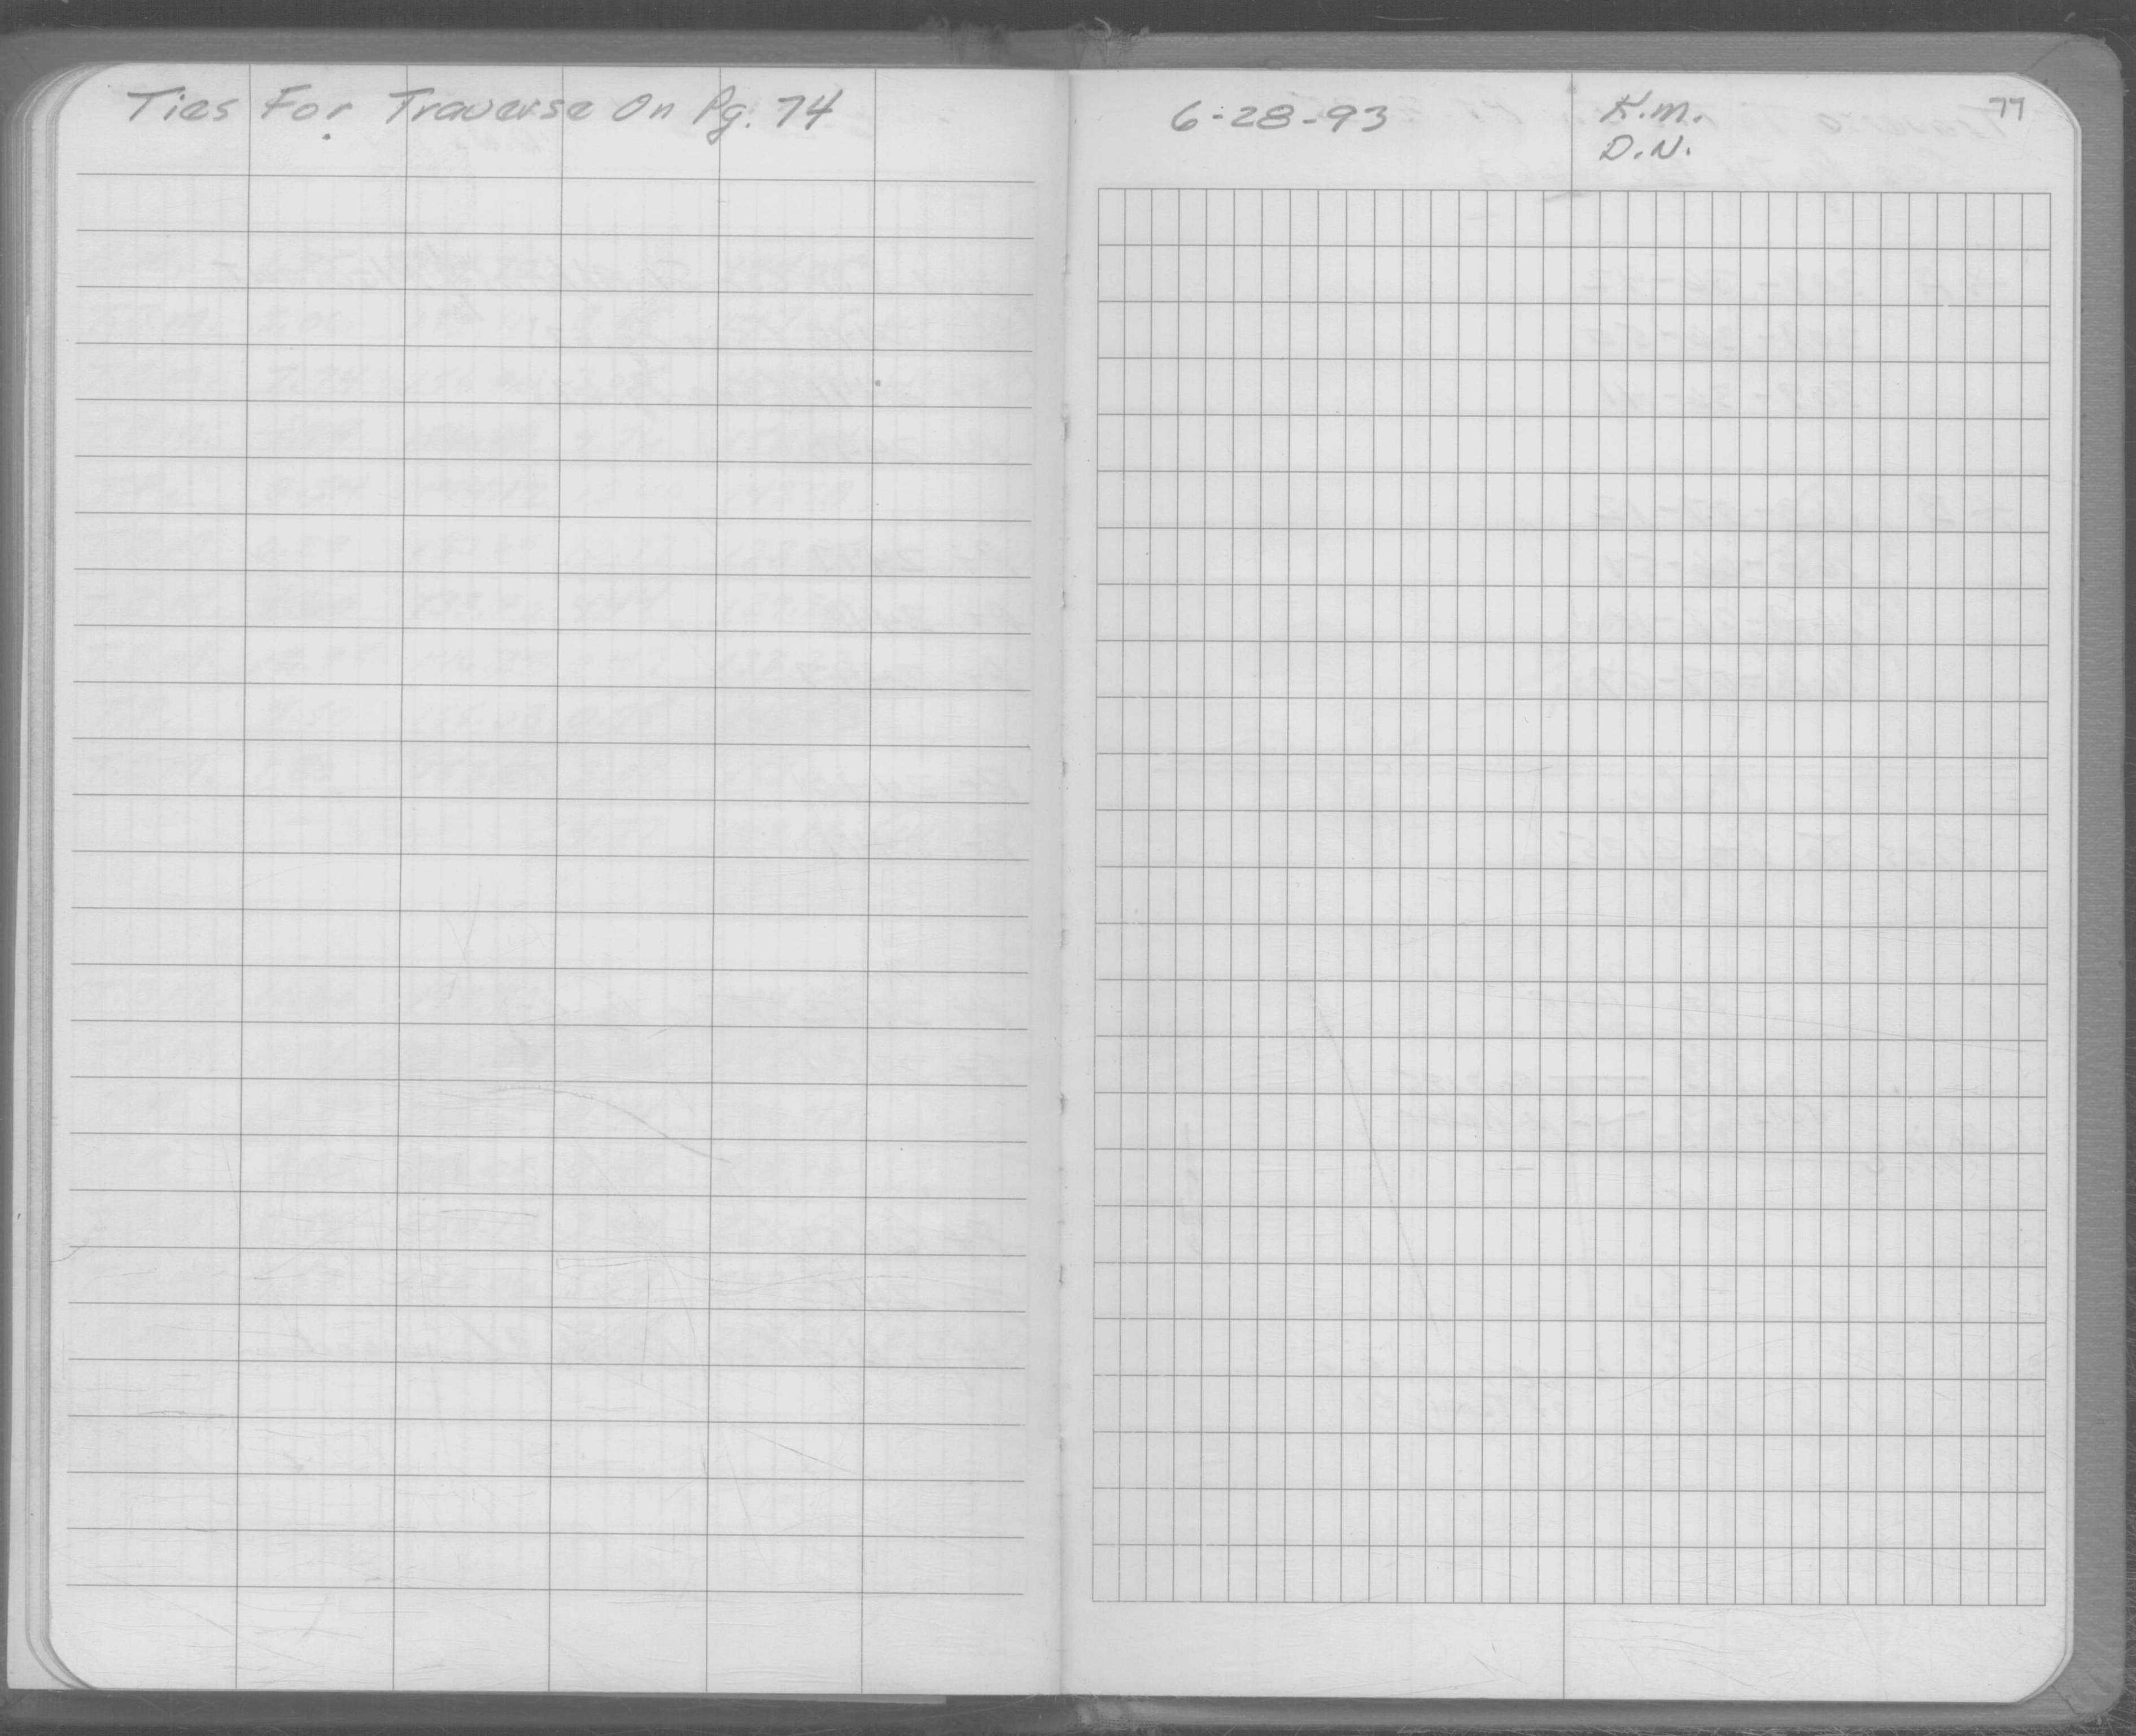 Ties For Traverse On Pg. 74
6-28-93
K.M.
D.N.
77